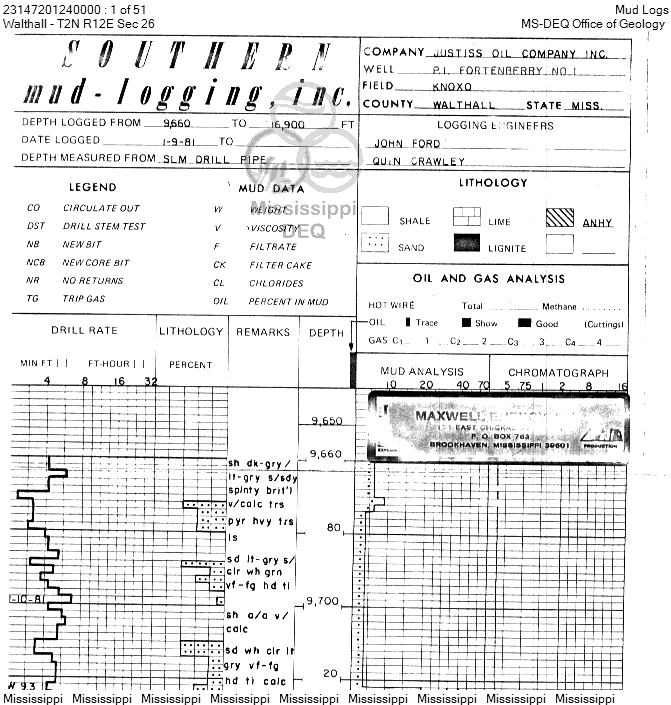 23147201240000 : 1 of 51
Mud Logs
Walthall - T2N R12E Sec 26
MS-DEQ Office of Geology
SOUTHERN
mud-logging, inc.
COMPANY JUSTISS OIL COMPANY INC.
WELL P.I. FORTENBERRY NO.1
FIELD KNOXO
COUNTY WALTHALL STATE MISS.
DEPTH LOGGED FROM 9,660 TO 16,900 FT
DATE LOGGED 1-9-81 TO
DEPTH MEASURED FROM SLM DRILL PIPE
LOGGING ENGINEERS
JOHN FORD
QUIN CRAWLEY
LEGEND
CO CIRCULATE OUT
DST DRILL STEM TEST
NB NEW BIT
NCB NEW CORE BIT
NR NO RETURNS
TG TRIP GAS
MUD DATA
W WEIGHT
V VISCOSITY
F FILTRATE
CK FILTER CAKE
CL CHLORIDES
OIL PERCENT IN MUD
Mississippi
DEQ
LITHOLOGY
SHALE LIME ANHY
SAND LIGNITE
OIL AND GAS ANALYSIS
HOT WIRE Total Methane
OIL Trace Show Good (Cuttings)
GAS C1 1 C2 2 C3 3 C4 4
DRILL RATE LITHOLOGY REMARKS DEPTH
MIN FT FT-HOUR PERCENT
4 8 16 32
MUD ANALYSIS CHROMATOGRAPH
10 20 40 70 5 .75 1 2 8 16
MAXWELL
P. O. BOX 763
BROOKHAVEN, MISSISSIPPI 39601
PRODUCTION
9,650
9,660
sh dk-gry/
lt-gry s/sdy
splnty brit'l
v/calc trs
pyr hvy trs
ls
80
sd lt-gry s/
clr wh grn
vf-fg hd ti
1-10-81
9,700
sh a/a v/
calc
sd wh clr lt
gry vf-fg
hd ti calc
20
W 9.3
Mississippi Mississippi Mississippi Mississippi Mississippi Mississippi Mississippi Mississippi Mississippi